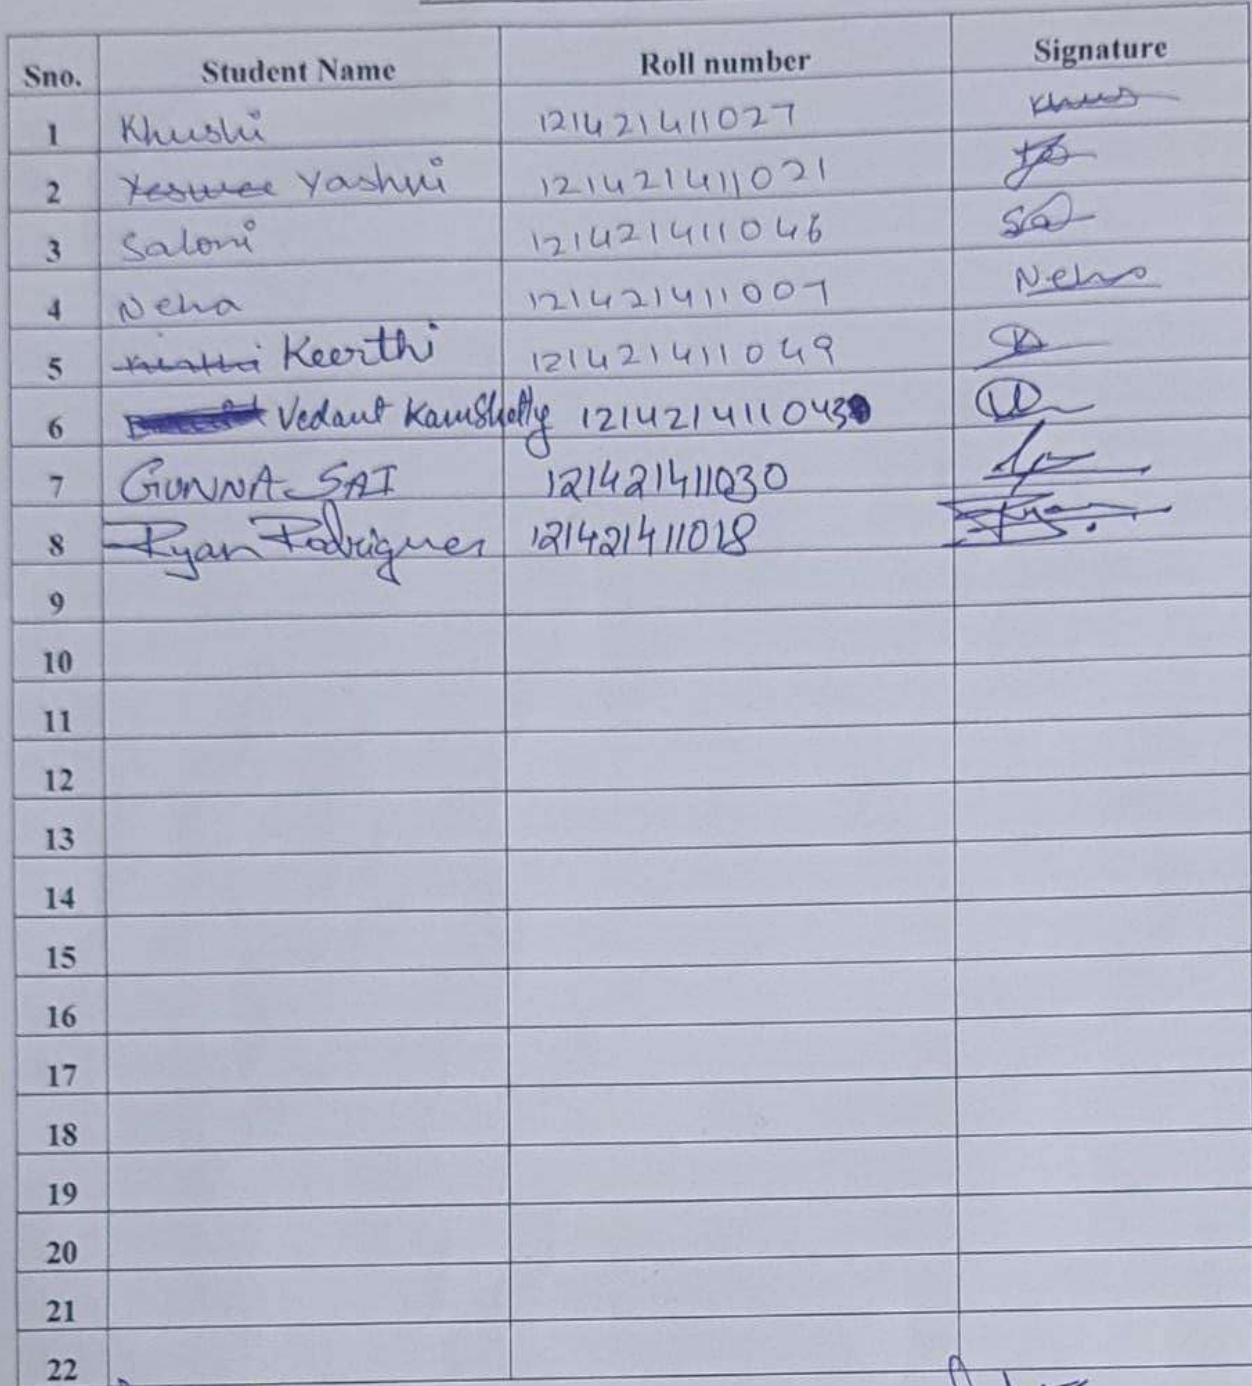 Sno. Student Name Roll number Signature
1 Khushi 121421411027 Khus
2 Yashvi 121421411021
3 Saloni 121421411046 Sal
4 Neha 121421411007 Neha
5 Keerthi 121421411049
6 Vedant Kamshetty 121421411043
7 GUNNA SAI 121421411030
8 Ryan Rodrigues 121421411018 Ryan
9
10
11
12
13
14
15
16
17
18
19
20
21
22